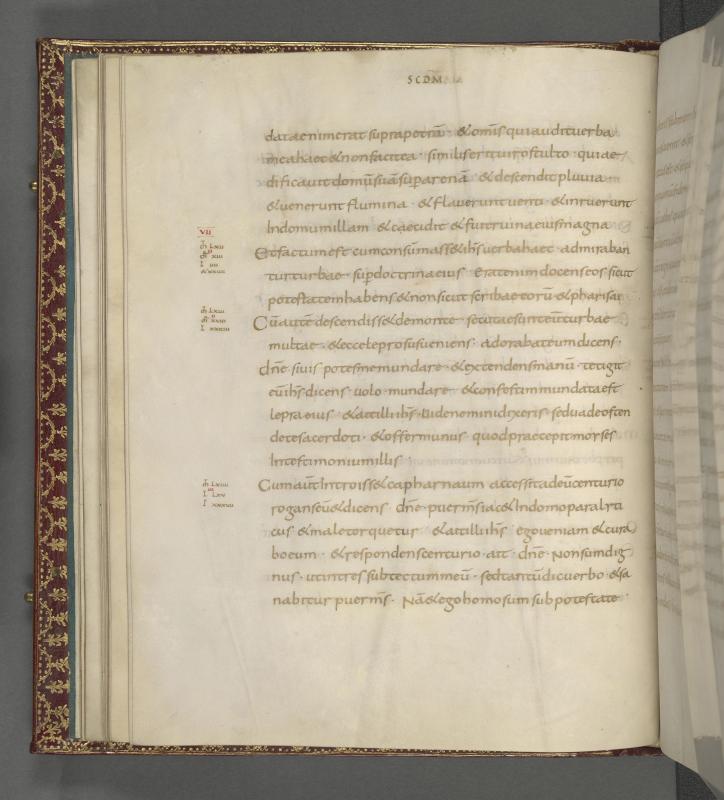 SCDM
data enim erat supra petrā · & omīs qui audit uerba
mea haec & non facit ea · similis erit uiro stulto · qui ae
dificauit domū suā supra arenā · & descendit pluuia
& uenerunt flumina · & flauerunt uenti · & inruerunt
In domum illam & caecidit & fuit ruina eius magna
VII
Et factum est cum consūmass& ih̄s uerba haec · admiraban
tur turbae · sup̄ doctrina eius · Erat enim docens eos sicut
potestatem habens & non sicut scribae eorū & pharisaei
Cū autē descendiss& de monte · secutae sunt eum turbae
multae · & ecce leprosus ueniens · adorabat eum dicens ·
dn̄e · si uis potes me mundare · & extendens manū · tetigit
eū ih̄s dicens · uolo · mundare · & confestim mundata est
lepra eius · & ait illi ih̄s · Uide nemini dixeris · sed uade osten
de te sacerdoti · & offer munus quod praecepit moyses
In testimonium illis
Cum aūt Introiss& capharnaum accessit ad eū centurio
rogans eū & dicens dn̄e · puer m̄s iac& In domo paralyti
cus & male torquetur & ait illi ih̄s · ego ueniam & cura
bo eum · & respondens centurio · ait · dn̄e · Non sum dig
nus · ut intres sub tectum meū · sed tantū dic uerbo · & sa
nabitur puer m̄s · Nā & ego homo sum sub potestate